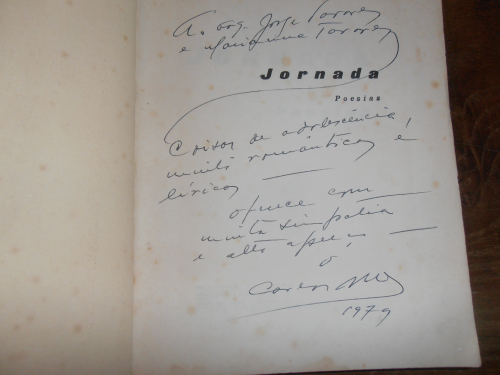 A. Eng. Jorge Torres
e Torres
Jornada
Poesias
Coisas de adolescência,
muito românticas e
líricas
oferece com
muita simpatia
e alto apreço,
o
Carlos
1979